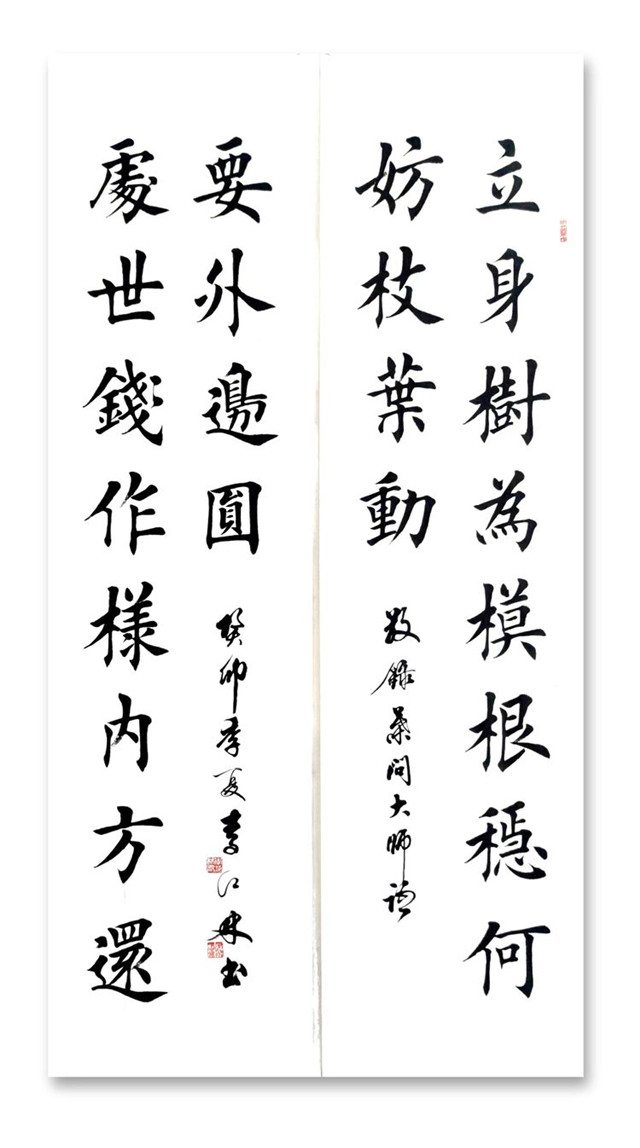 立身樹為模根穩何
妨枝葉動
錄葉問大師
處世錢作樣内方還
要外邊圓
癸卯季夏李江林書